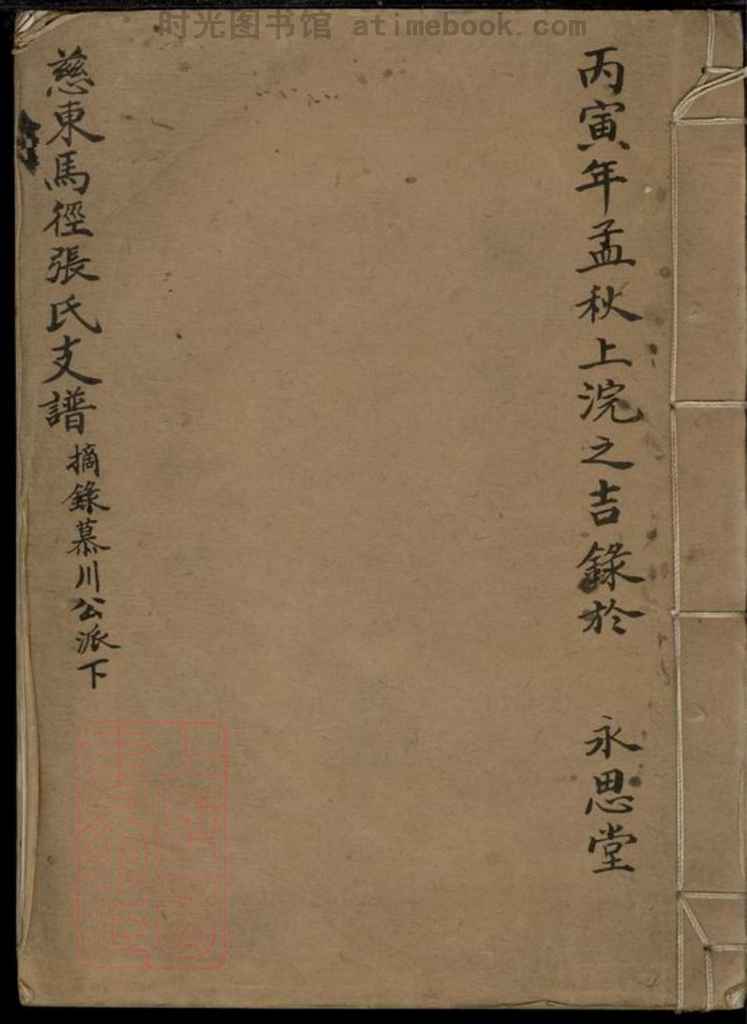 时光图书馆 atimebook.com
丙寅年孟秋上浣之吉錄於 永思堂
慈東馬徑張氏支譜 摘錄慕川公派下